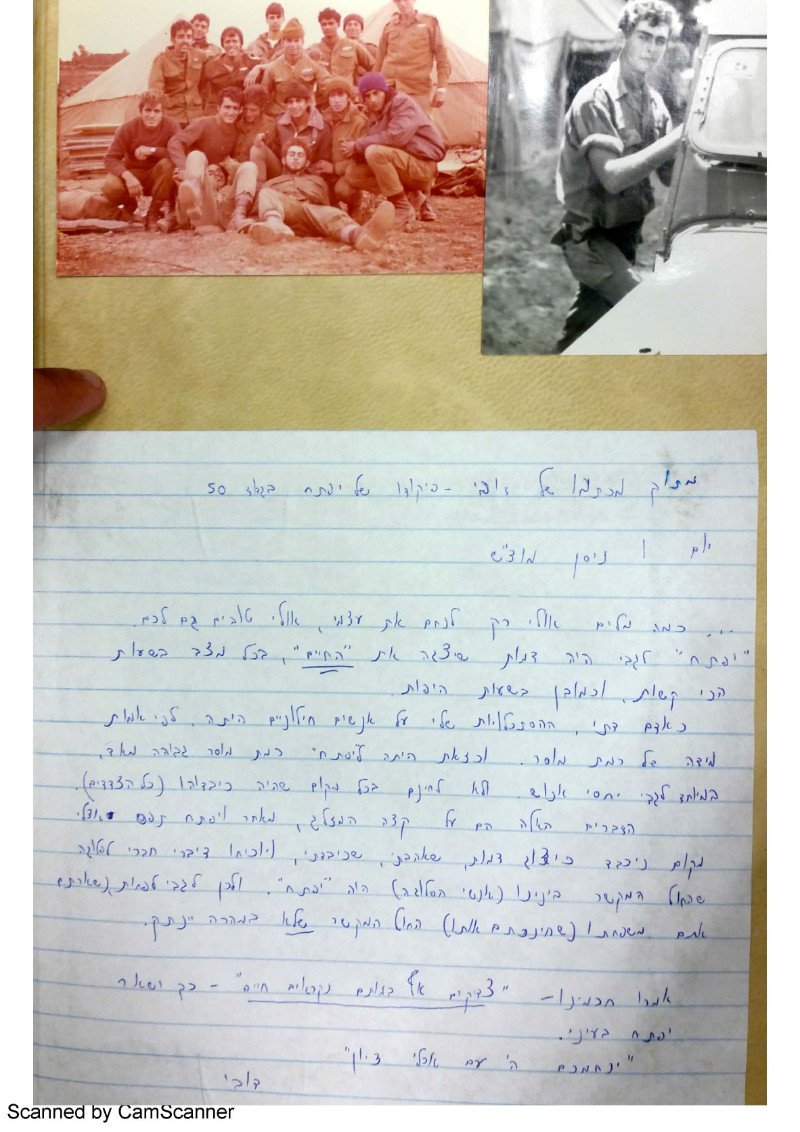 מתוך מכתבו של דובי - פיקודו של יפתח בגדוד 50
יום ו ניסן מוצ"ש
... כמה מלים אולי רק לנחם את עצמי, אולי טובים גם לכם.
"יפתח" לגבי היה דמות שיצגה את "החיים", בכל מצב בשעות
הכי קשות, וכמובן בשעות היפות.
כאדם דתי, ההסתכלות שלי על אנשים חילוניים היתה, לפי אמות
מידה של רמת מוסר. וכזאת היתה ל"יפתח" רמת מוסר גבוהה מאד,
במיוחד לגבי יחסי אנוש. ולא לחינם בכל מקום שהיה כיבדוהו (כל הצדדים).
הדברים האלה הם על קצה המזלג, מאחר ויפתח תפס אצלי
מקום ניכבד כיצוג דמות, שאהבתי, שכיבדתי, ויוכיחו דיברי חברי לפלוגה
שהחוט המקשר בינינו (אנשי הפלוגה) היה "יפתח". ולכן לגבי לפחות, נשארתם
אתם משפחתו (שחינכתם אותו) החוט המקשר שלא במהרה יינתק.
אמרו חכמינו - "צדיקים אף במותם נקראים חיים" - כך ישאר
יפתח בעיני.
"ינחמכם ה' עם אבלי ציון"
דובי
Scanned by CamScanner